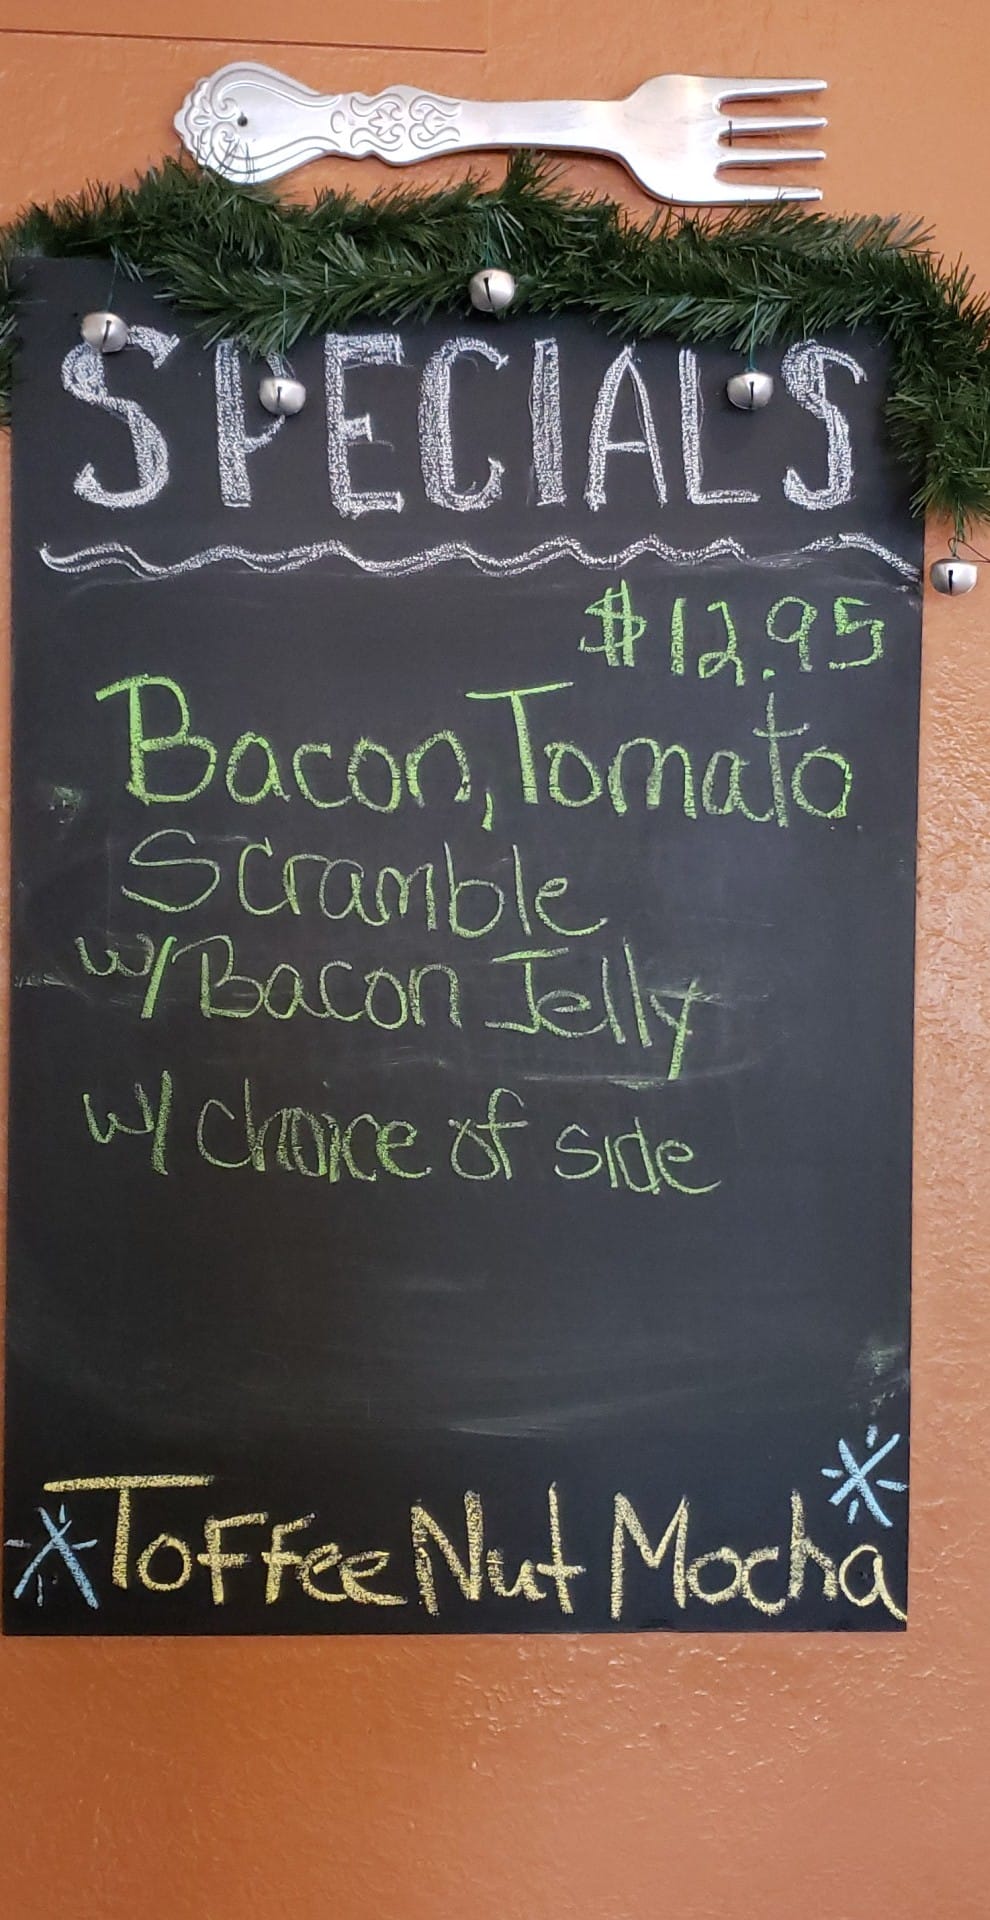 SPECIALS
$12.95
Bacon, Tomato
Scramble
w/ Bacon Jelly
w/ choice of side
Toffee Nut Mocha